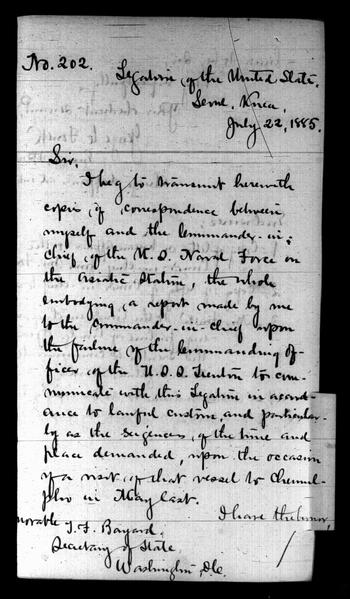 No. 202.
Legation of the United States,
Seoul, Korea,
July 22, 1885.
Sir,
I beg to transmit herewith
copies of correspondence between
myself and the Commander-in-
Chief of the U.S. Naval Force on
the Asiatic Station, the whole
embodying a report made by me
to the Commander-in-chief upon
the failure of the Commanding Of-
ficer of the U.S.S. Trenton to com-
municate with this Legation in accord-
ance to lawful custom, and particular-
ly as the exigencies of the time and
place demanded, upon the occasion
of a visit of that vessel to Chemul-
pho in May last.
I have the honor,
norable T. F. Bayard,
Secretary of State,
Washington, D.C.